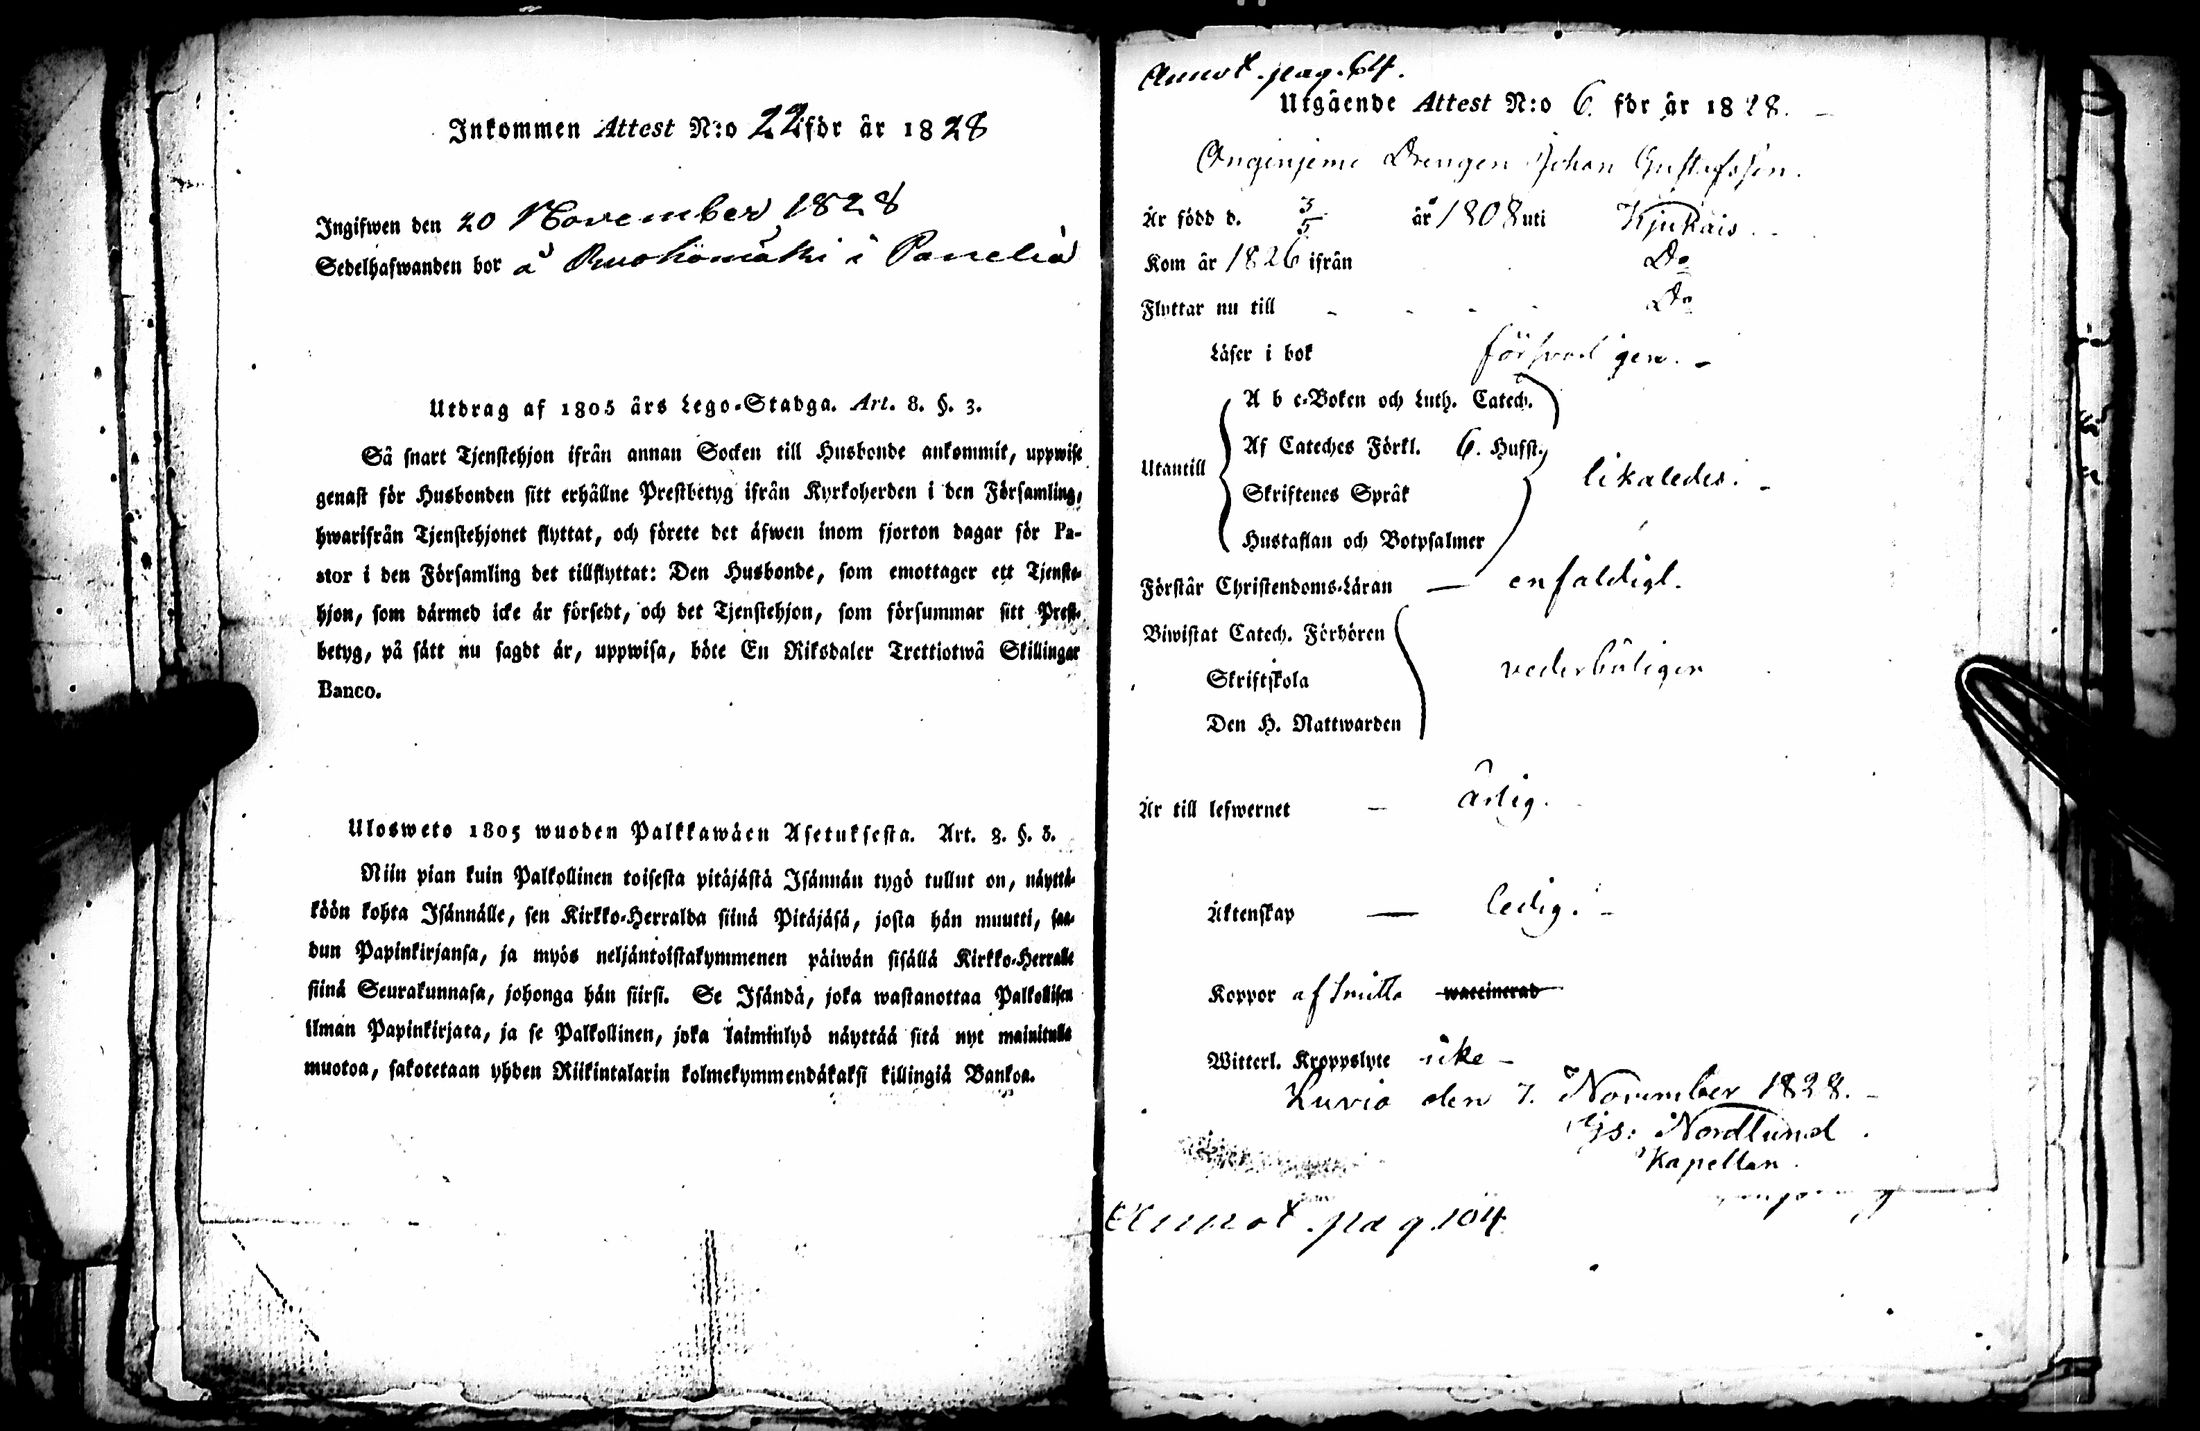 Inkommen Attest N:o 22 för år 1828
Ingifwen den 20 November 1828
Sedelhafwanden bor å i Panelia
Utdrag af 1805 års Lego-Stadga. Art. 8. §. 3.
Så snart Tjenstehjon ifrån annan Socken till Husbonde ankommit, uppwise
genast för Husbonden sitt erhållne Prestbetyg ifrån Kyrkoherden i den Församling,
hwarifrån Tjenstehjonet flyttat, och förete det äfwen inom fjorton dagar för Pa-
stor i den Församling det tillflyttat: Den Husbonde, som emottager ett Tjenste-
hjon, som därmed icke är försedt, och det Tjenstehjon, som försummar sitt Prest-
betyg, på sätt nu sagdt är, uppwisa, böte En Riksdaler Trettiotwå Skillingar
Banco.
Ulosweto 1805 wuoden Palkkawäen Asetuksesta. Art. 8. §. 3.
Niin pian kuin Palkollinen toisesta pitäjästä Isännän tygö tullut on, näyttä-
köön kohta Isännälle, sen Kirkko-Herralda siinä Pitäjäsä, josta hän muutti, saa-
dun Papinkirjansa, ja myös neljäntoistakymmenen päiwän sisällä Kirkko-Herralle
siinä Seurakunnasa, johonga hän siirsi. Se Isändä, joka wastanottaa Palkollisen
ilman Papinkirjata, ja se Palkollinen, joka laiminlyö näyttää sitä nyt mainitulla
muotoa, sakotetaan yhden Riikintalarin kolmekymmendäkaksi killingiä Bankoa.
Annot. pag. 64.
Utgående Attest N:o 6. för år 1828.
Drengen Johan Gustafsson.
Är född d. 3/5 år 1808 uti Kjukais
Kom år 1826 ifrån Do
Flyttar nu till Do
Läser i bok försvarligen.
A b c-Boken och Luth. Catech.
Af Cateches Förkl. 6. Hufst.
Utantill likaledes.
Skriftenes Språk
Hustaflan och Botpsalmer
Förstår Christendoms-Läran — enfaldigt.
Biwistat Catech. Förhören
Skriftskola vederbörligen
Den H. Nattwarden
Är till lefwernet — ärlig.
Äktenskap — ledig.
Koppor af smitta waccinerad
Witterl. Kroppslyte icke
Luvia den 7. November 1828.
Gs: Nordlund
Kapellan.
Annot. pag. 104